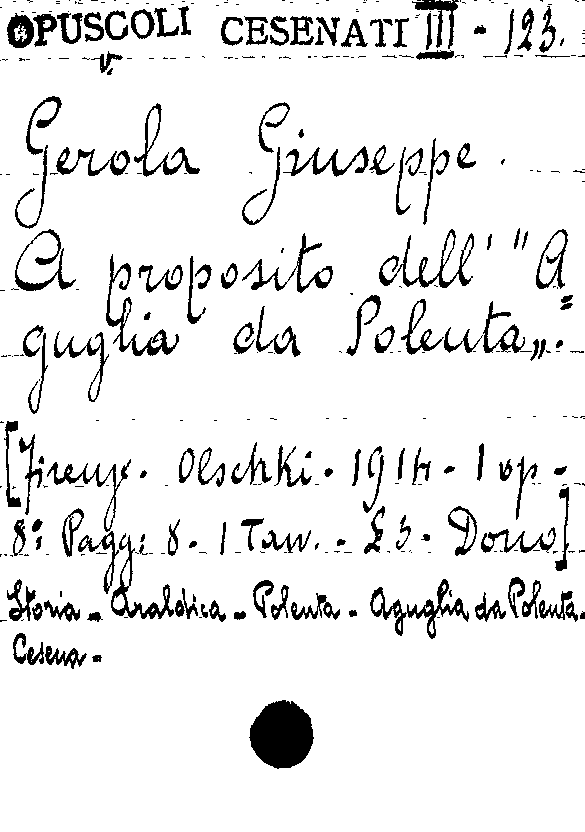 OPUSCOLI CESENATI III - 123.
Gerola Giuseppe.
A proposito dell' "A=
guglia da Polenta„.
[Firenze. Olschki. 1914 - 1 op -
8°: Pagg: 8 - 1 Tav. - £ 3 - Dono]
Storia - Araldica - Polenta - Aguglia da Polenta.
Cesena -